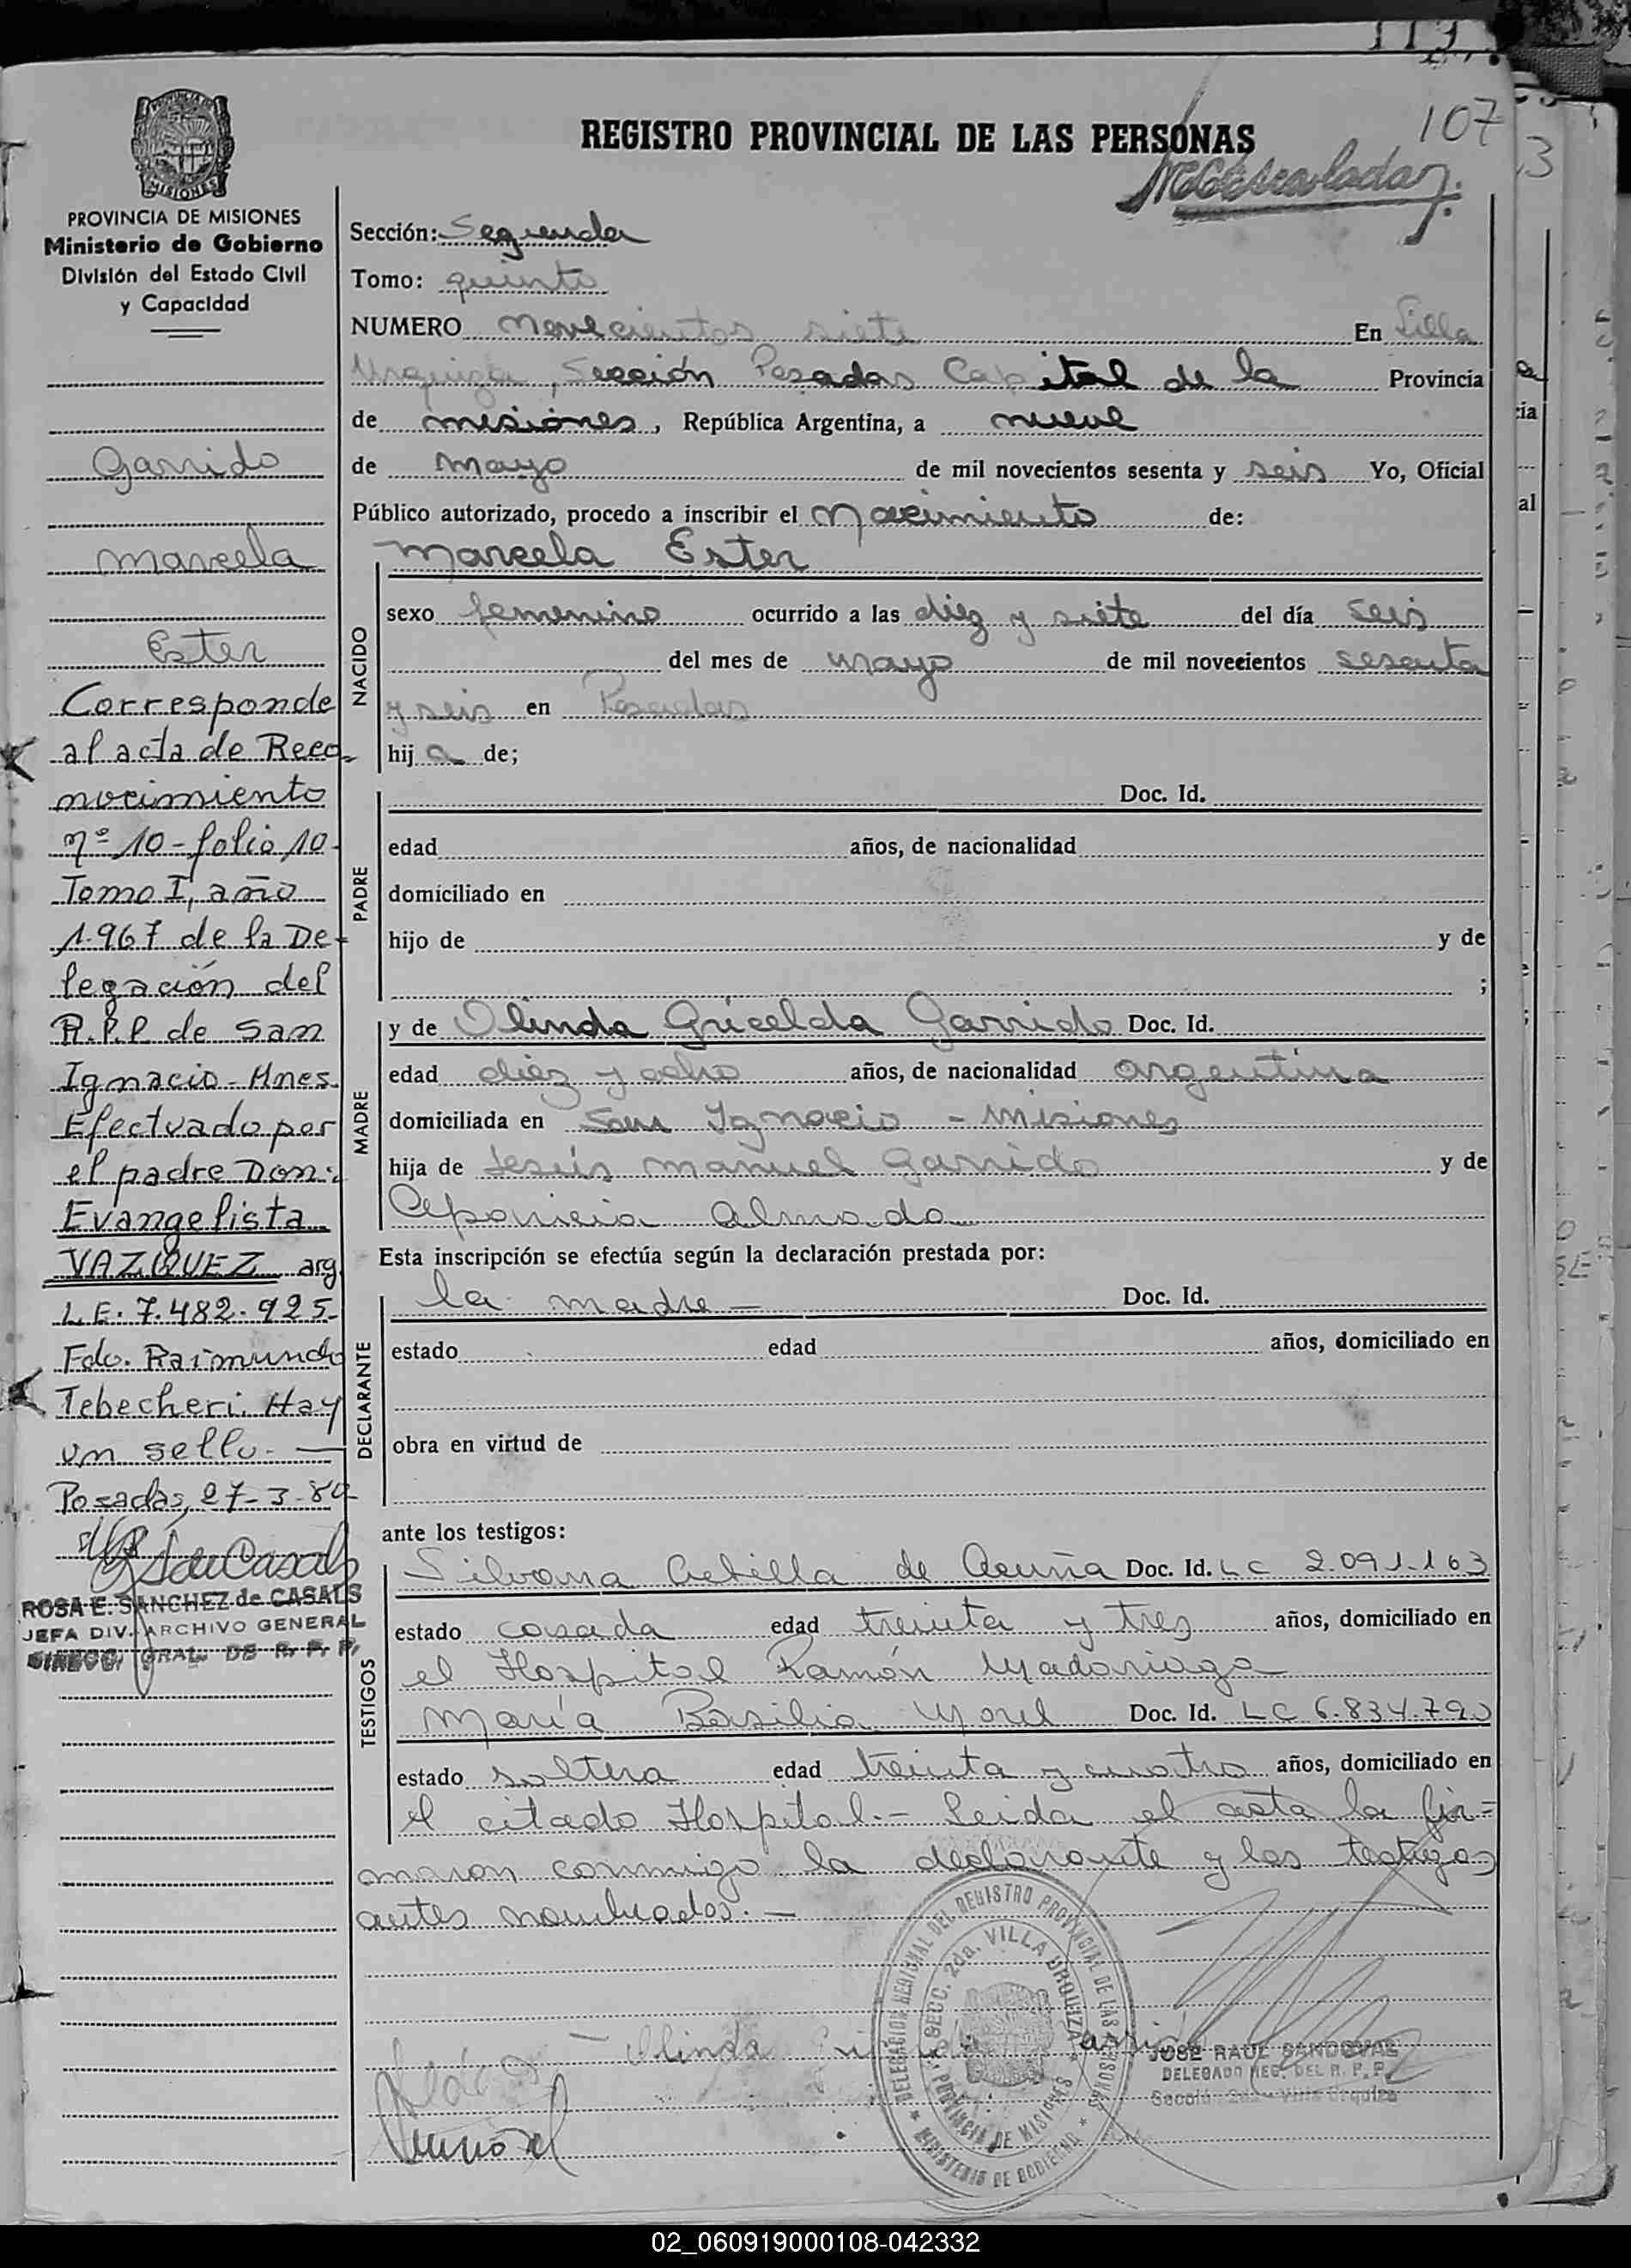 107
REGISTRO PROVINCIAL DE LAS PERSONAS
MISIONES
PROVINCIA DE MISIONES
Ministerio de Gobierno
División del Estado Civil
y Capacidad
Garrido
Marcela
Ester
Corresponde
al acta de Reco-
nocimiento
nº 10 - folio 10-
Tomo I, año
1.967 de la De-
legación del
R.P.P. de San
Ignacio - Mnes.
Efectuado por
el padre Don:
Evangelista
VAZQUEZ arg.
L.E. 7.482.925-
Fdo. Raimundo
Tebecheri. Hay
un sello.-
Posadas, 27-3-80
ROSA E. SANCHEZ de CASALS
JEFA DIV. ARCHIVO GENERAL
DIRECC. GRAL. DE R. P. P.
Sección: Segunda
Tomo: quinto
NUMERO novecientos siete En Villa
Urquiza, Sección Posadas Capital de la Provincia
de misiones, República Argentina, a nueve
de mayo de mil novecientos sesenta y seis Yo, Oficial
Público autorizado, procedo a inscribir el Nacimiento de:
Marcela Ester
NACIDO
sexo femenino ocurrido a las diez y siete del día seis
del mes de mayo de mil novecientos sesenta
y seis en Posadas
hija de;
PADRE
Doc. Id.
edad años, de nacionalidad
domiciliado en
hijo de y de
;
MADRE
y de Olinda Gricelda Garrido Doc. Id.
edad diez y ocho años, de nacionalidad argentina
domiciliada en San Ignacio - Misiones
hija de Jesús Manuel Garrido y de
Aponicia Almada
Esta inscripción se efectúa según la declaración prestada por:
DECLARANTE
la madre - Doc. Id.
estado edad años, domiciliado en
obra en virtud de
ante los testigos:
TESTIGOS
Silvana de Acuña Doc. Id. LC 2.091.163
estado casada edad treinta y tres años, domiciliado en
el Hospital Ramón Madariaga
María Basilia Morel Doc. Id. LC 6.834.790
estado soltera edad treinta y cuatro años, domiciliado en
el citado Hospital.- Leida el acta la fir=
maron conmigo la declarante y los testigos
antes nombrados.-
DELEGACION REGIONAL DEL REGISTRO PROVINCIAL DE LAS PERSONAS
SECC. 2da. VILLA URQUIZA
PROVINCIA DE MISIONES
MINISTERIO DE GOBIERNO
Olinda
JOSE RAUL SANDOVAL
DELEGADO REG. DEL R. P. P.
Sección 2da - Villa Urquiza
02_060919000108-042332